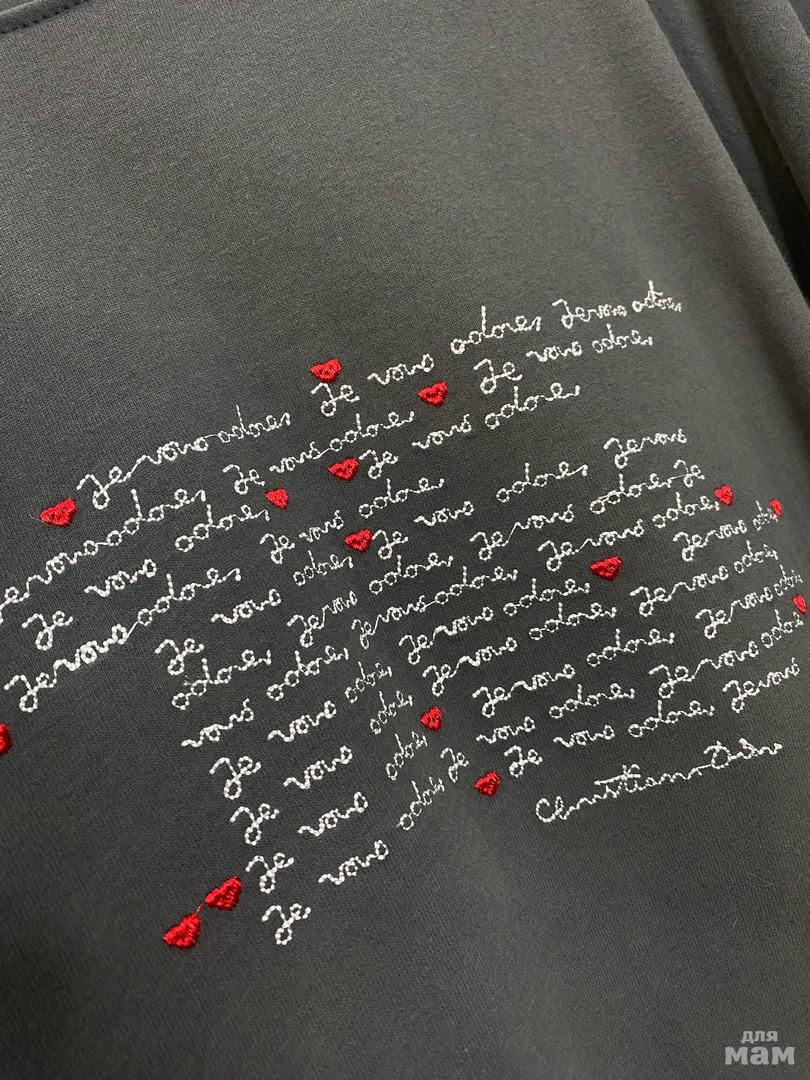 Je vous adore, Je vous adore, Je vous adore,
Je vous adore, Je vous adore, Je vous adore,
Je vous adore, Je vous adore,
Je vous adore, Je vous adore,
Je vous adore, Je vous adore, Je vous
adore, Je vous adore, Je vous adore, Je
vous adore, Je vous adore, Je vous adore,
Je vous adore, Je vous adore, Je vous adore,
Je vous adore, Je vous adore, Je vous adore,
Je vous adore, Je vous adore, Je vous adore,
Je vous adore, Je vous adore, Je vous adore,
Je vous adore, Je vous
Christian Dior
для
мам